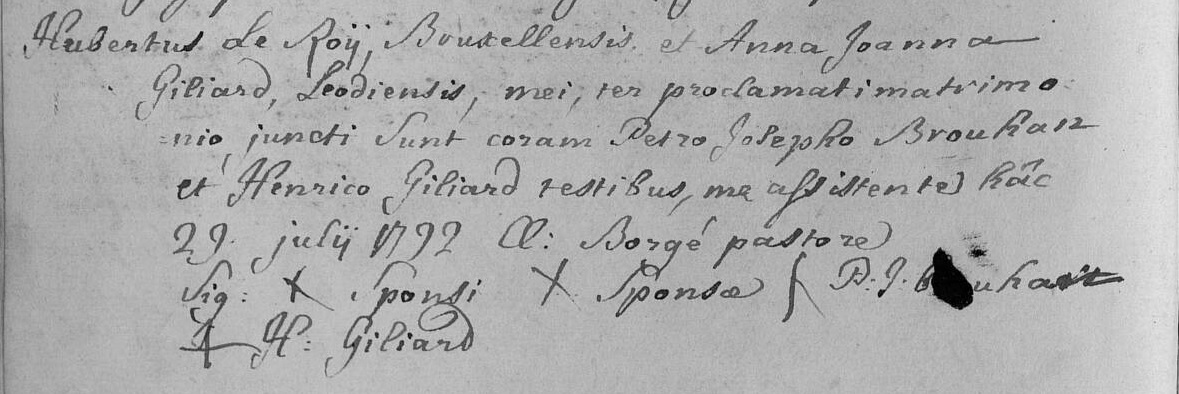 Hubertus Le Roÿ, Bruxellensis. et Anna Joanna
Giliard, Leodiensis, mei, ter proclamati matrimo
=nio, juncti sunt coram Petro Josepho Brouhan
et Henrico Giliard testibus, me assistente hâc
29. julij 1792 Cl: Borgé pastore
Sig: + Sponsi + Sponsæ P: J:
+ H: Giliard